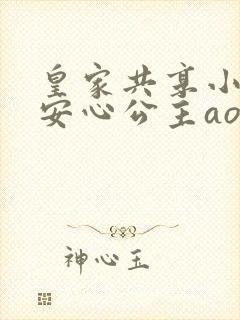 皇家共享小
安心公主ao
神心玉